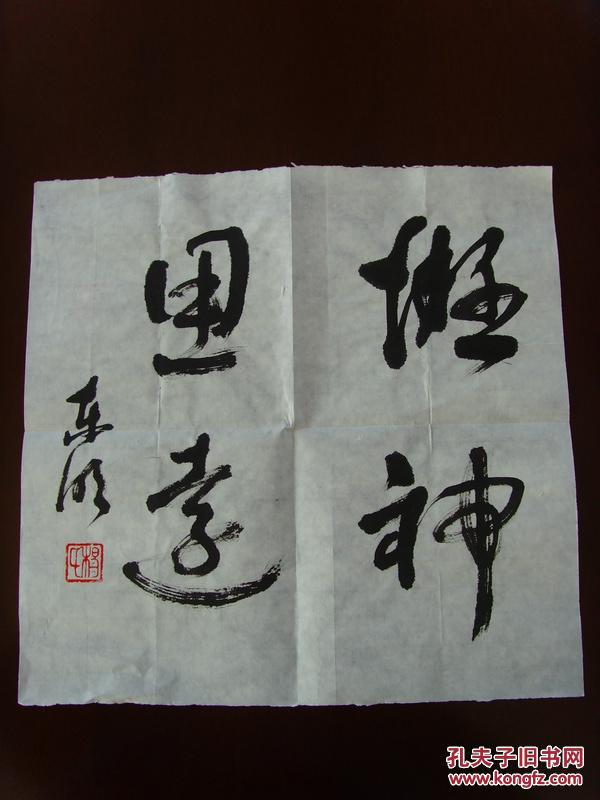 凝神
思遠
孔夫子旧书网
www.kongfz.com